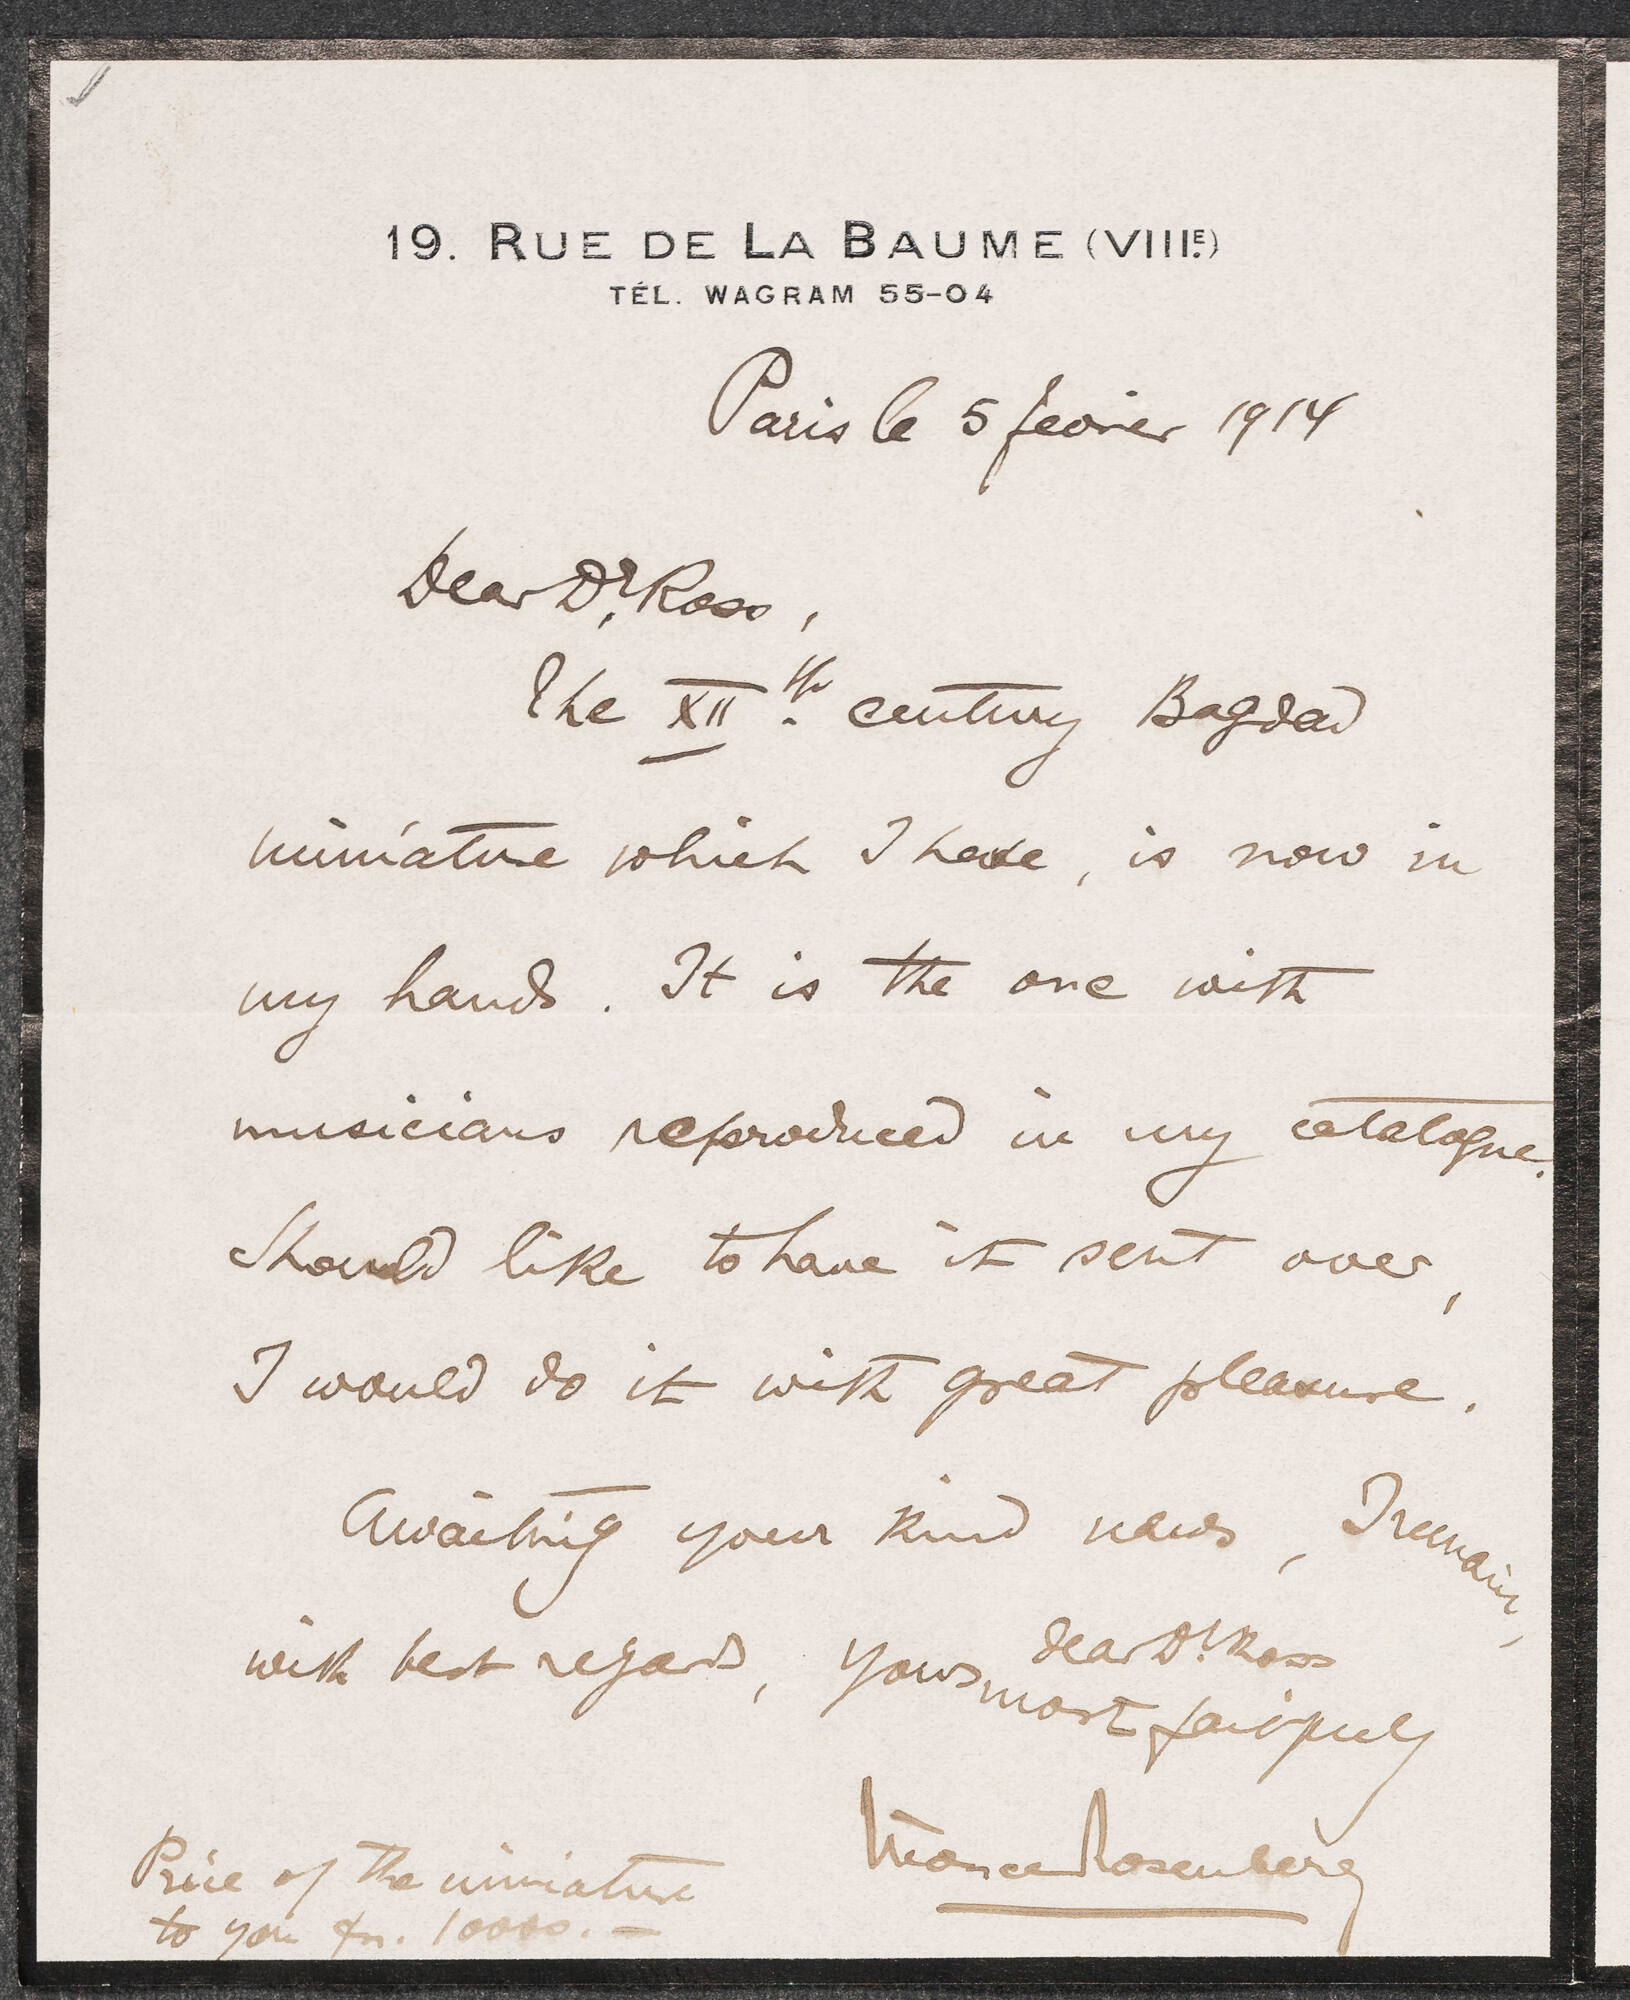 19. RUE DE LA BAUME (VIIIE.)
TÉL. WAGRAM 55-04
Paris le 5 fevrier 1914
Dear Dr. Ross,
The XIIth. century Bagdad
miniature which I have, is now in
my hands. It is the one with
musicians reproduced in my catalogue.
Should like to have it sent over,
I would do it with great pleasure.
Awaiting your kind news, I remain,
dear Dr. Ross
with best regards, yours
most faithfully
Léonce Rosenberg
Price of the miniature
to you frs. 10000.—